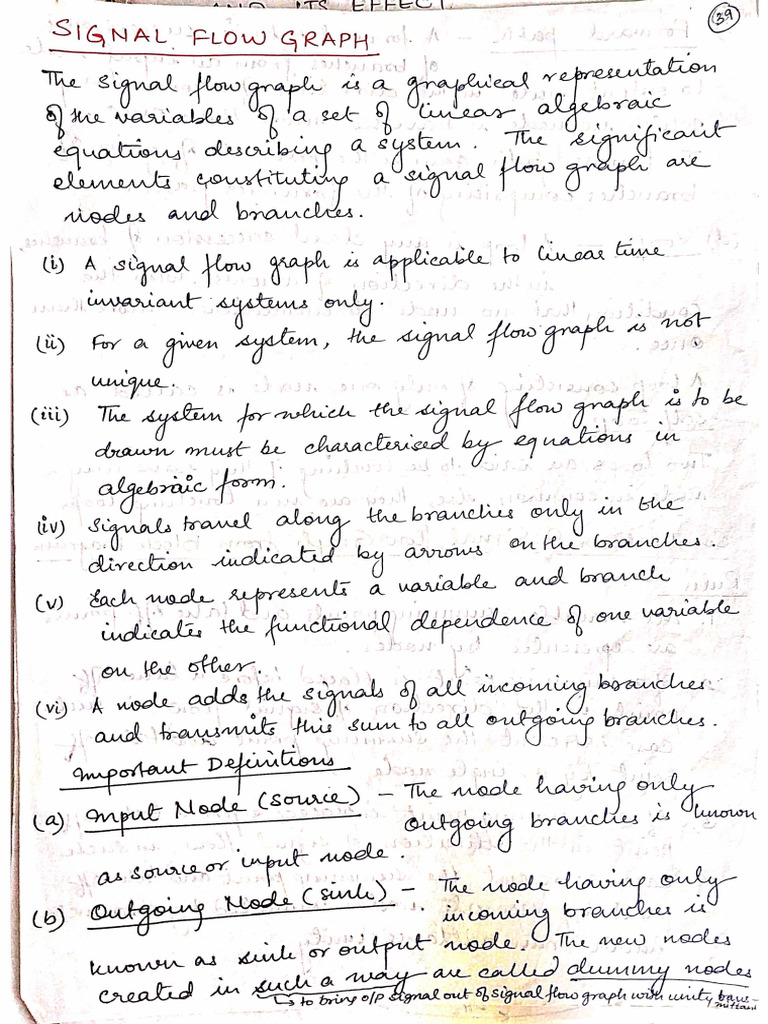 AND ITS EFFECT
39
SIGNAL FLOW GRAPH
The signal flow graph is a graphical representation
of the variables of a set of linear algebraic
equations describing a system. The significant
elements constituting a signal flow graph are
nodes and branches.
(i) A signal flow graph is applicable to linear time
invariant systems only.
(ii) For a given system, the signal flow graph is not
unique.
(iii) The system for which the signal flow graph is to be
drawn must be characterised by equations in
algebraic form.
(iv) Signals travel along the branches only in the
direction indicated by arrows on the branches.
(v) Each node represents a variable and branch
indicates the functional dependence of one variable
on the other.
(vi) A node adds the signals of all incoming branches
and transmits this sum to all outgoing branches.
Important Definitions
(a) Input Node (source) - The node having only
outgoing branches is known
as source or input node.
(b) Outgoing Node (sink) - The node having only
incoming branches is
known as sink or output node. The new nodes
created in such a way are called dummy nodes
to bring o/p signal out of signal flow graph with unity